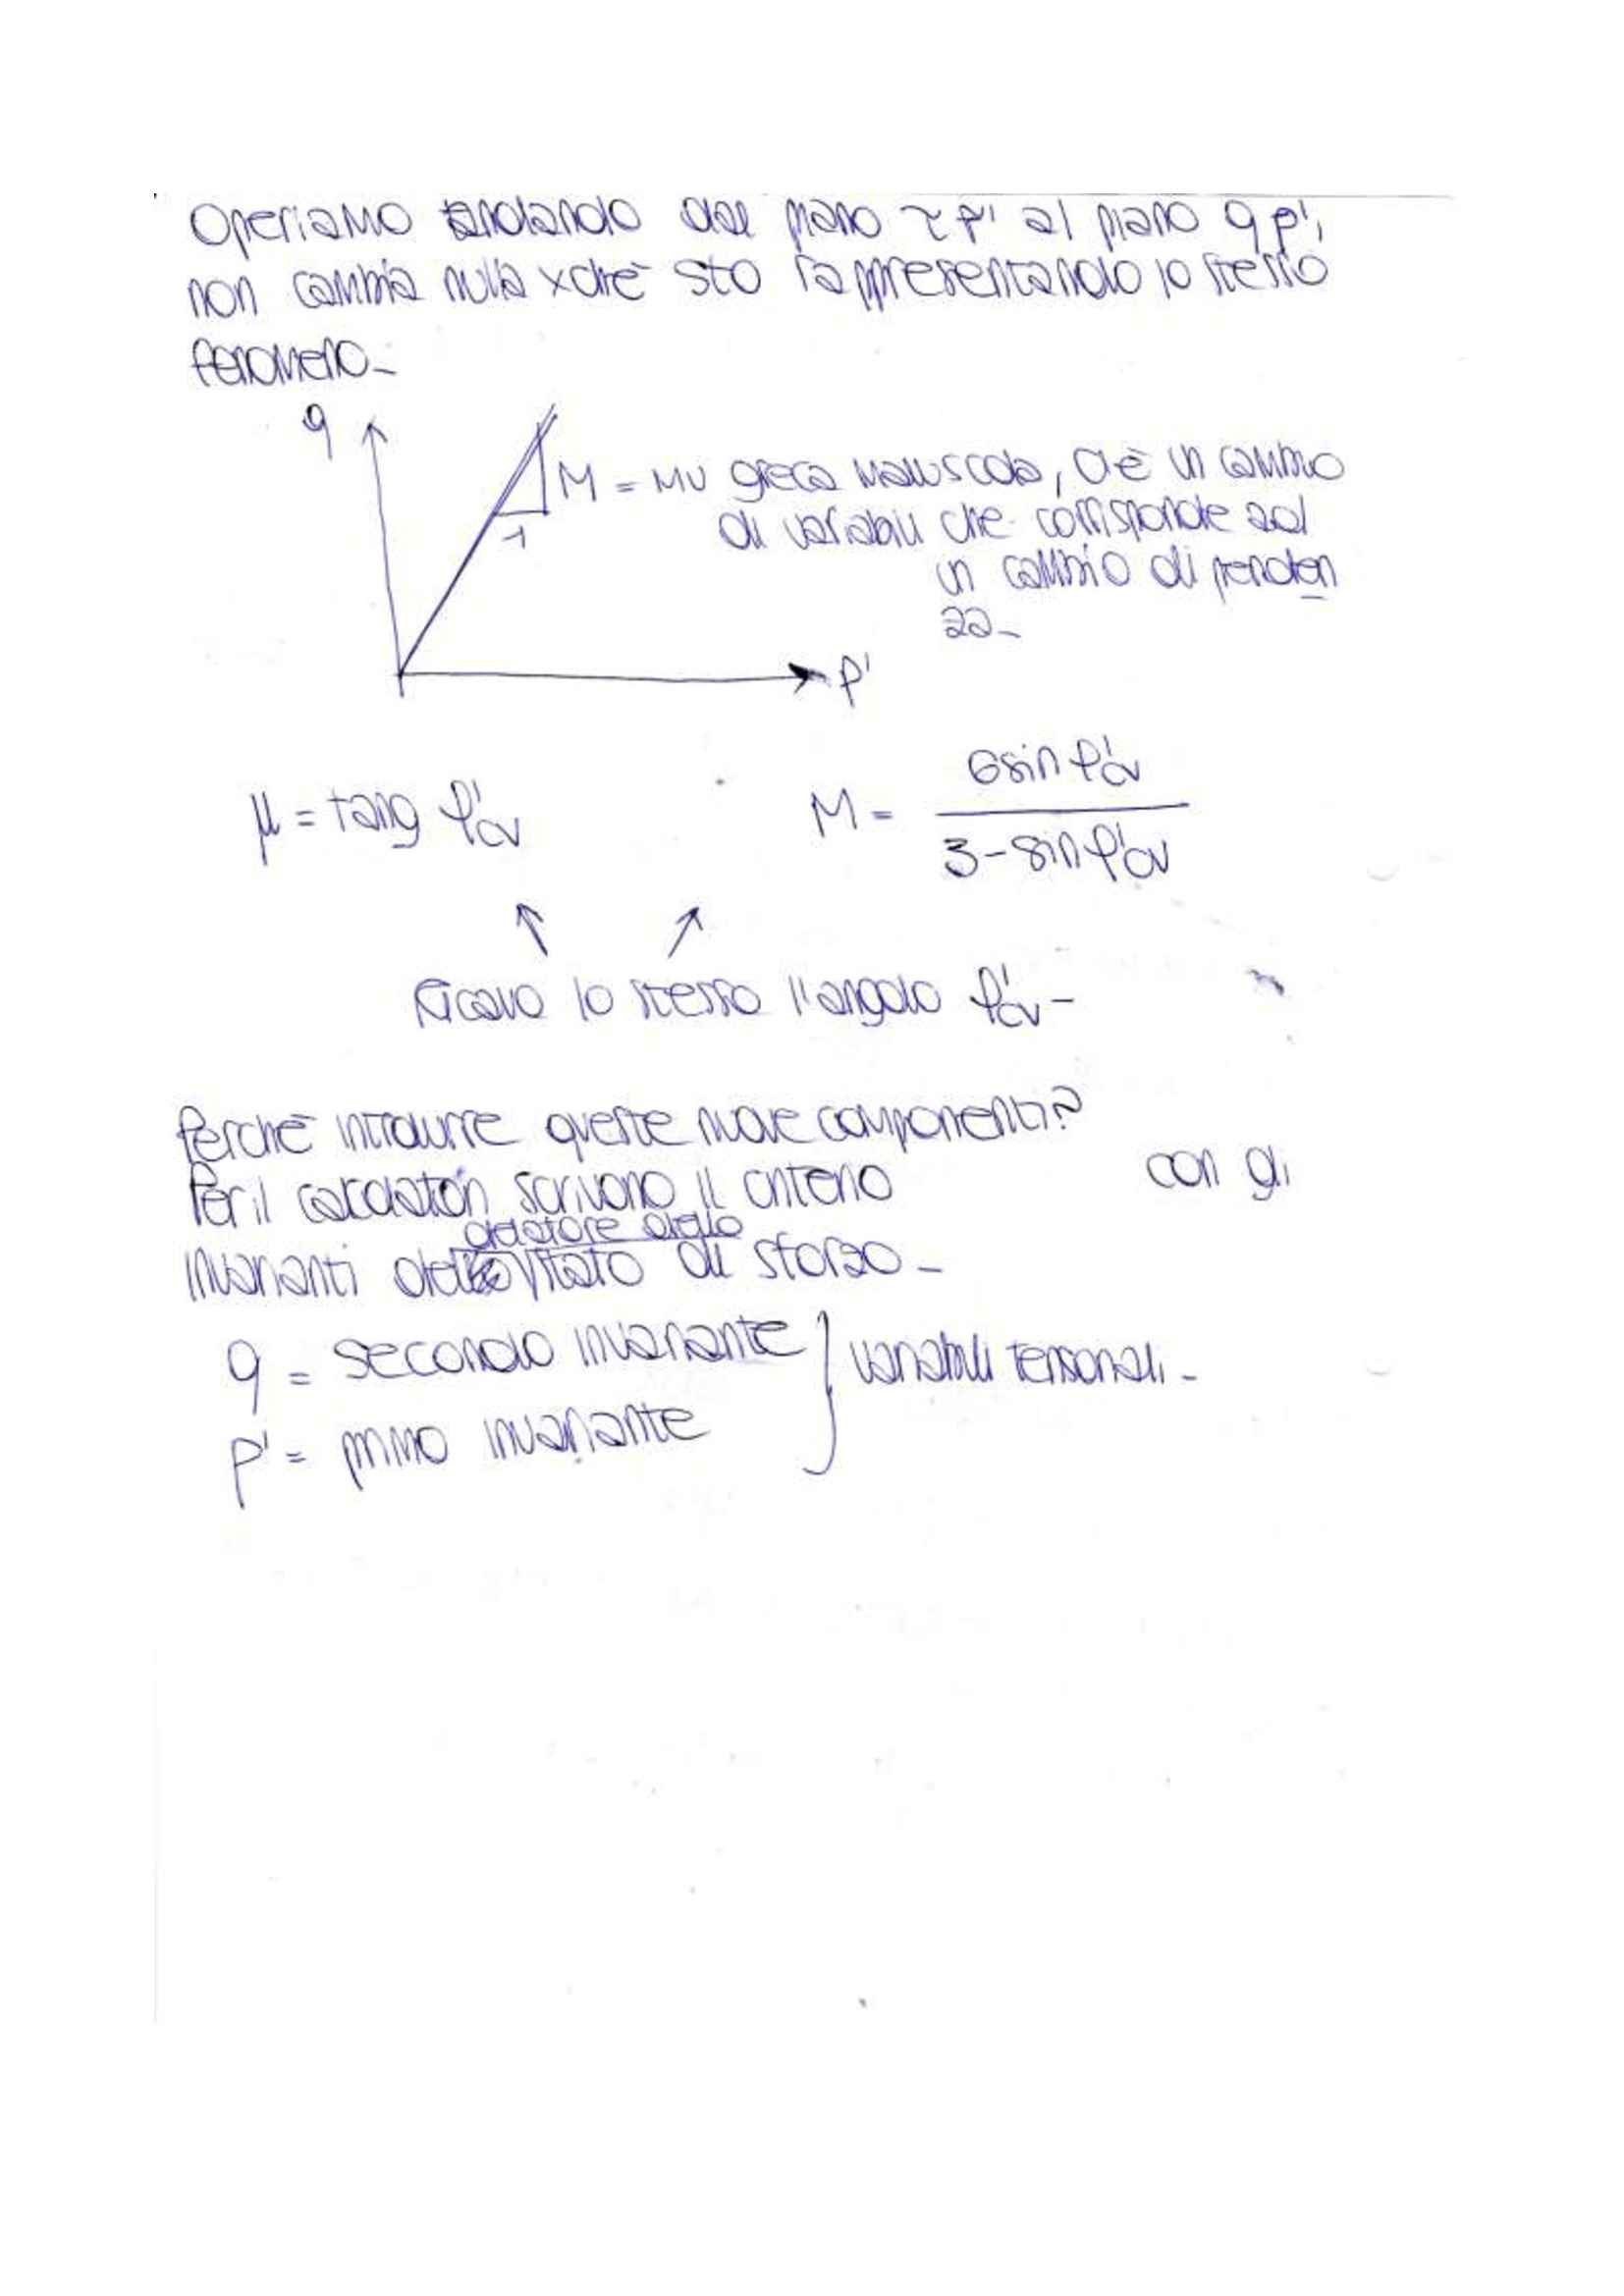 Operiamo andando dal piano τ p' al piano q p',
non cambia nulla xchè sto rappresentando lo stesso
fenomeno_
q
M = mu greca maiuscola, c'è un cambio
di variabili che corrisponde ad
1
un cambio di penden
za_
p'
μ = tang φ'cv
M = 6sinφ'cv / 3-sinφ'cv
Ricavo lo stesso l'angolo φ'cv -
Perchè introdurre queste nuove componenti?
Per il calcolatori scrivono il criterio con gli
invarianti dello stato di sforzo_
q = secondo invariante
variabili tensionali_
p' = primo invariante